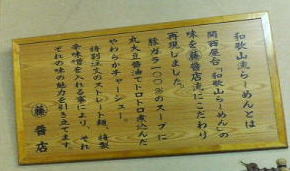 「和歌山流らーめん」とは
関西屋台「和歌山らーめん」の
味を藤醤店流にこだわり
再現しました。
豚ガラ一〇〇％のスープに
丸大豆醤油でトロトロ煮込んだ
やわらかチャーシュー。
特別注文のストレート麺、特製
辛味噌を入れる事により、それ
ぞれの味の魅力を引き立てます。
藤醤店